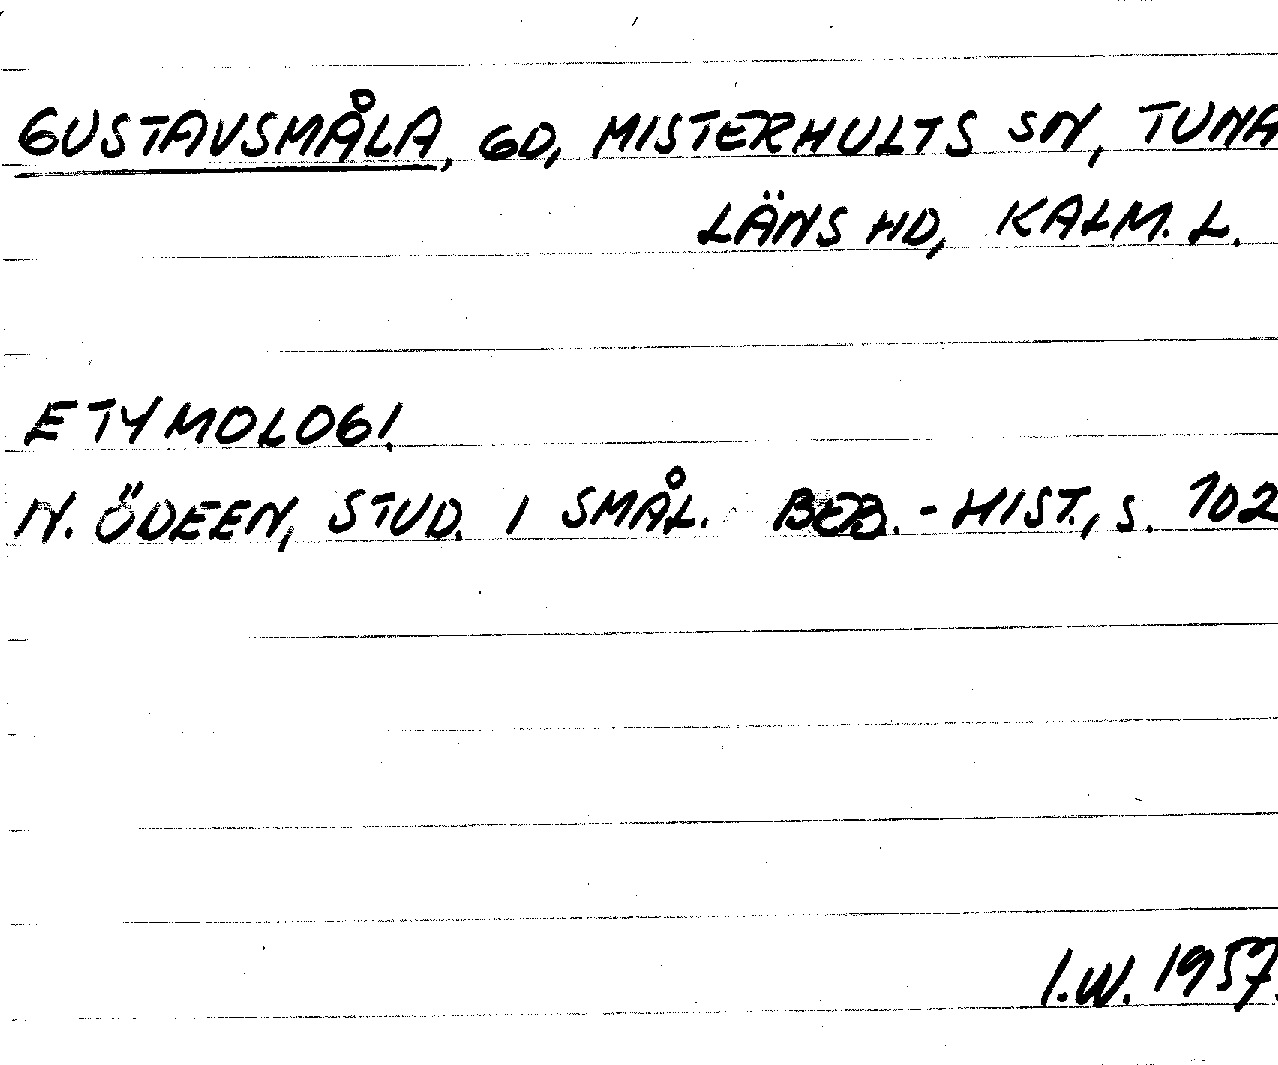 GUSTAVSMÅLA, GD, MISTERHULTS SN, TUNA
LÄNS HD, KALM. L.
ETYMOLOGI.
N. ÖDEEN, STUD. I SMÅL. BEB.-HIST., S. 102
I.W. 1957.